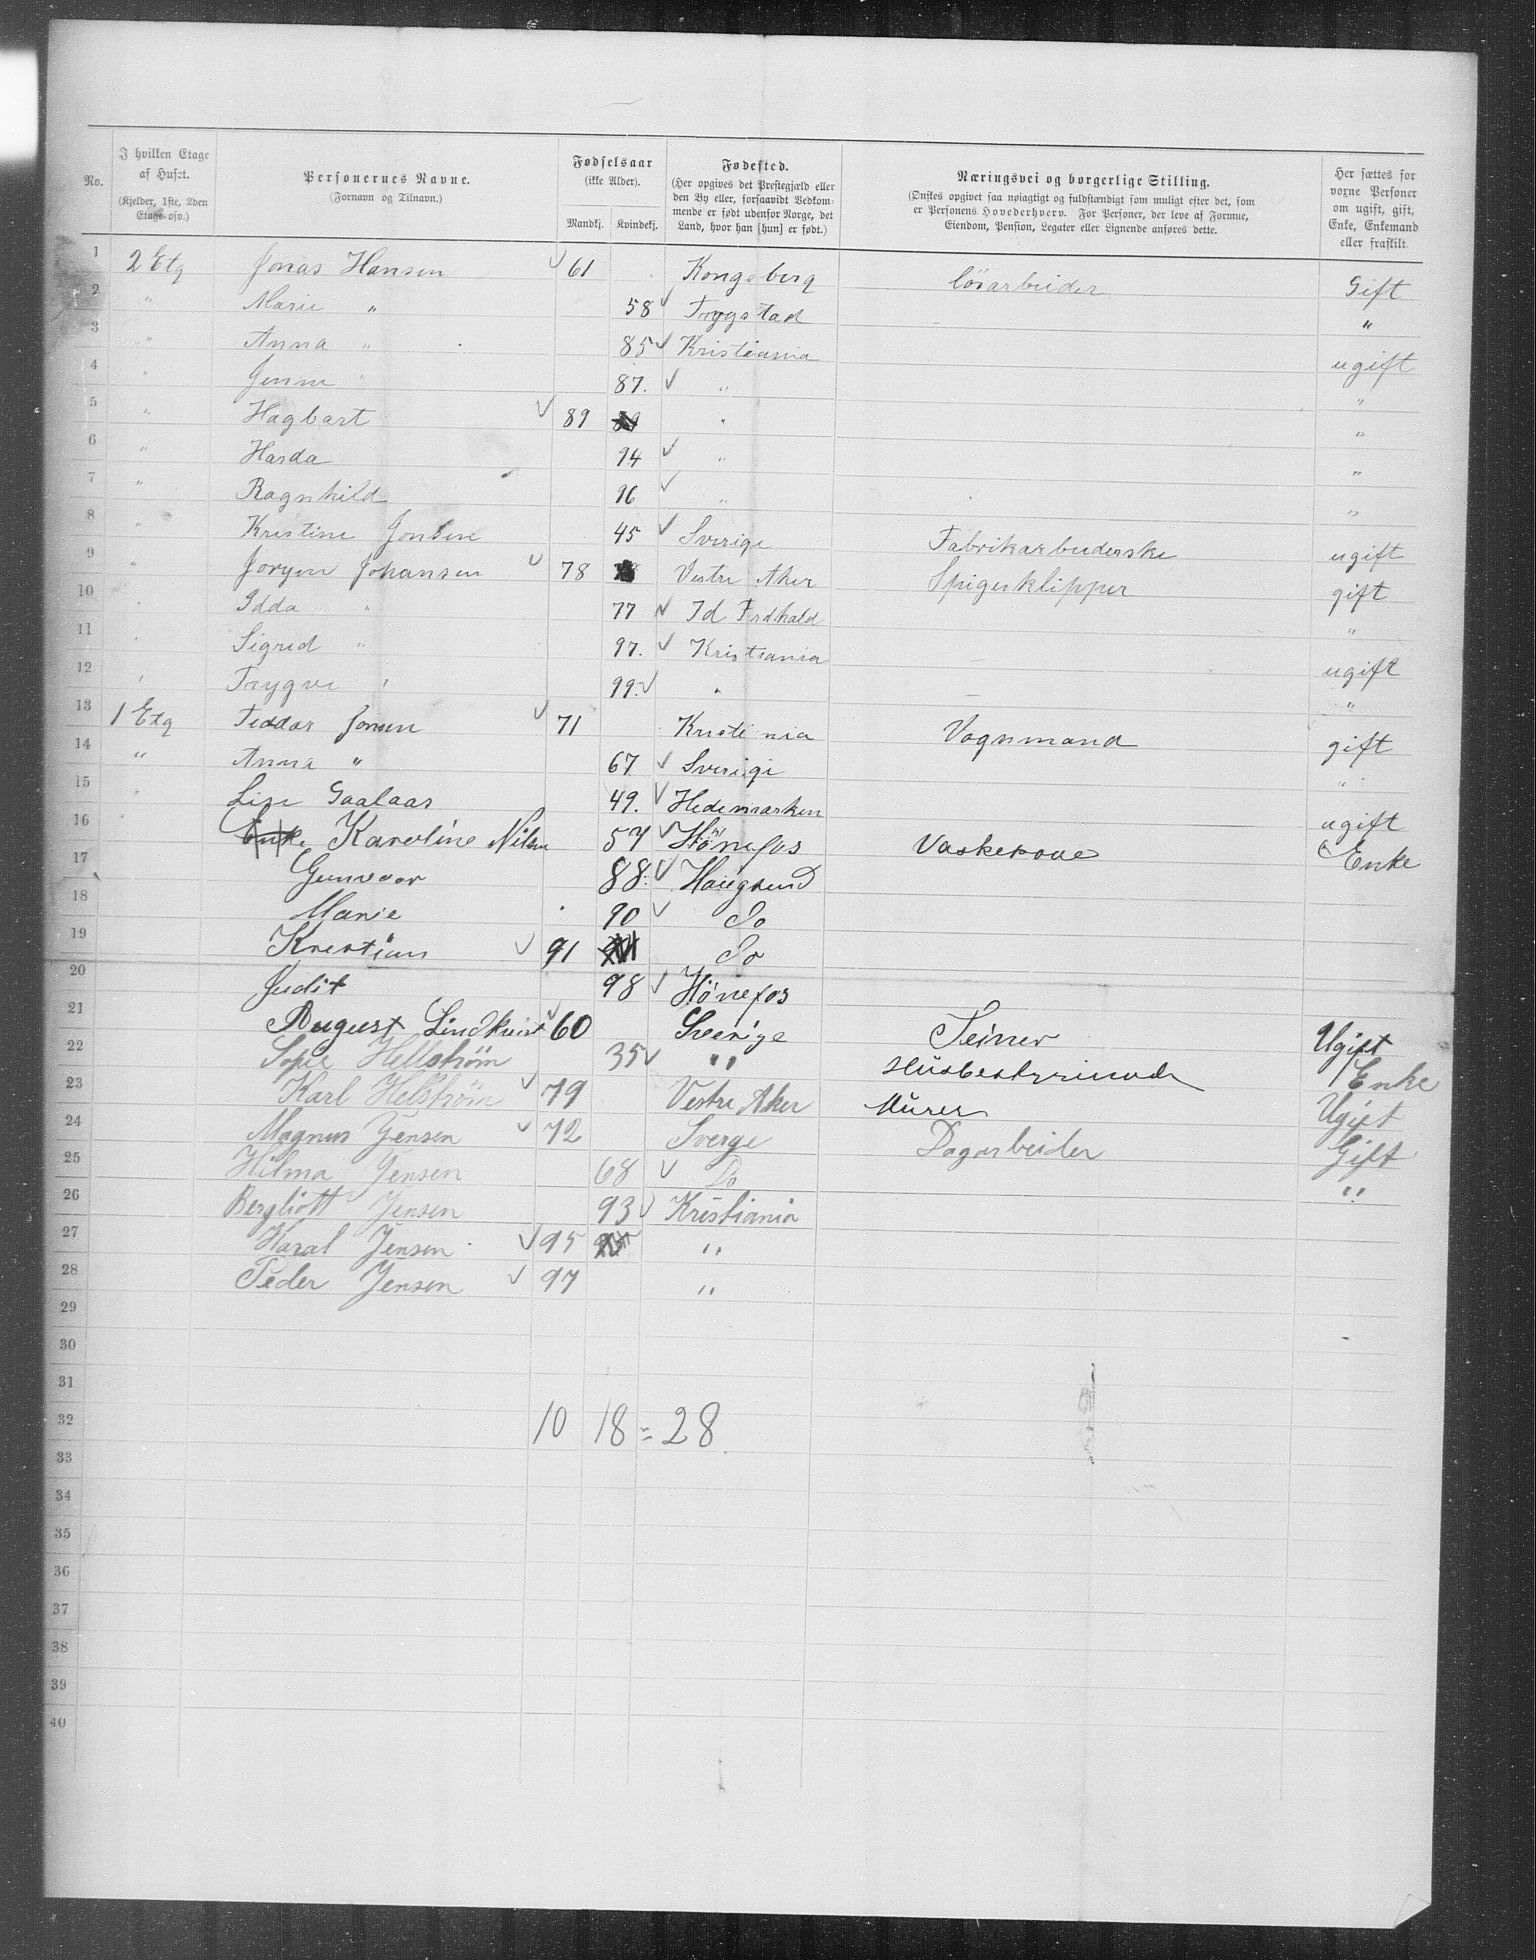 No.	I hvilken Etage af Huset. (Kjelder, 1ste, 2den Etage osv.)	Personernes Navne. (Fornavn og Tilnavn.)	Fødselsaar (ikke Alder). Mandkj. Kvindekj.	Fødested. (Her opgives det Prestegjæld eller den By eller, forsaavidt Vedkommende er født udenfor Norge, det Land, hvor han [hun] er født.)	Næringsvei og borgerlige Stilling. (Ønskes opgivet saa nøiagtigt og fuldstændigt som muligt efter det, som er Personens Hovederhverv. For Personer, der leve af Formue, Eiendom, Pension, Legater eller Lignende anføres dette.	Her sættes for vorne Personer om ugift, gift, Enke, Enkemand eller fraskilt.
1 2 Etg Jonas Hansen 61 Kongsberg lösarbeider Gift
2 " Marie " 58 Trygstad "
3 " Anna " 85 Kristiania ugift
4 " Jenne " 87. " "
5 " Hagbart 89 " "
6 " Harda 94 " "
7 " Ragnhild 96 " "
8 " Kristine Jonsen 45 Sverige Fabrikarbeiderske ugift
9 " Jorgen Johansen 78 Vestre Aker Spigerklipper gift
10 " Idda " 77 Id Frdhald "
11 " Sigrid " 97. Kristiania ugift
12 " Trygve " 99. " "
13 1 Etg Feddor Jonsen 71 Kristi nia Vognmand gift
14 " Anna " 67 Sverige "
15 " Lise Gaalaas 49. Hedemarken ugift
16 Enke Karoline Nilsen 57 Hönefos Vaskekone Enke
17 Gunevor 88. Haugsund
18 Marie 90 Do
19 Krestian 91 Do
20 Judit 98 Hönefos
21 August Lindkvist 60 Sverige Ugift
22 Sofie Hellström 35 " Husbestyrinde Enke
23 Karl Helström 79 Vestre Aker Murer Ugift
24 Magnus Jensen 72 Sverge Dagarbeider Gift
25 Hilma Jensen 68 Do "
26 Bergliott Jensen 93 Kristiania
27 Haral Jensen 95 "
28 Peder Jensen 97 "
29
30
31
32 10 18 = 28
33
34
35
36
37
38
39
40